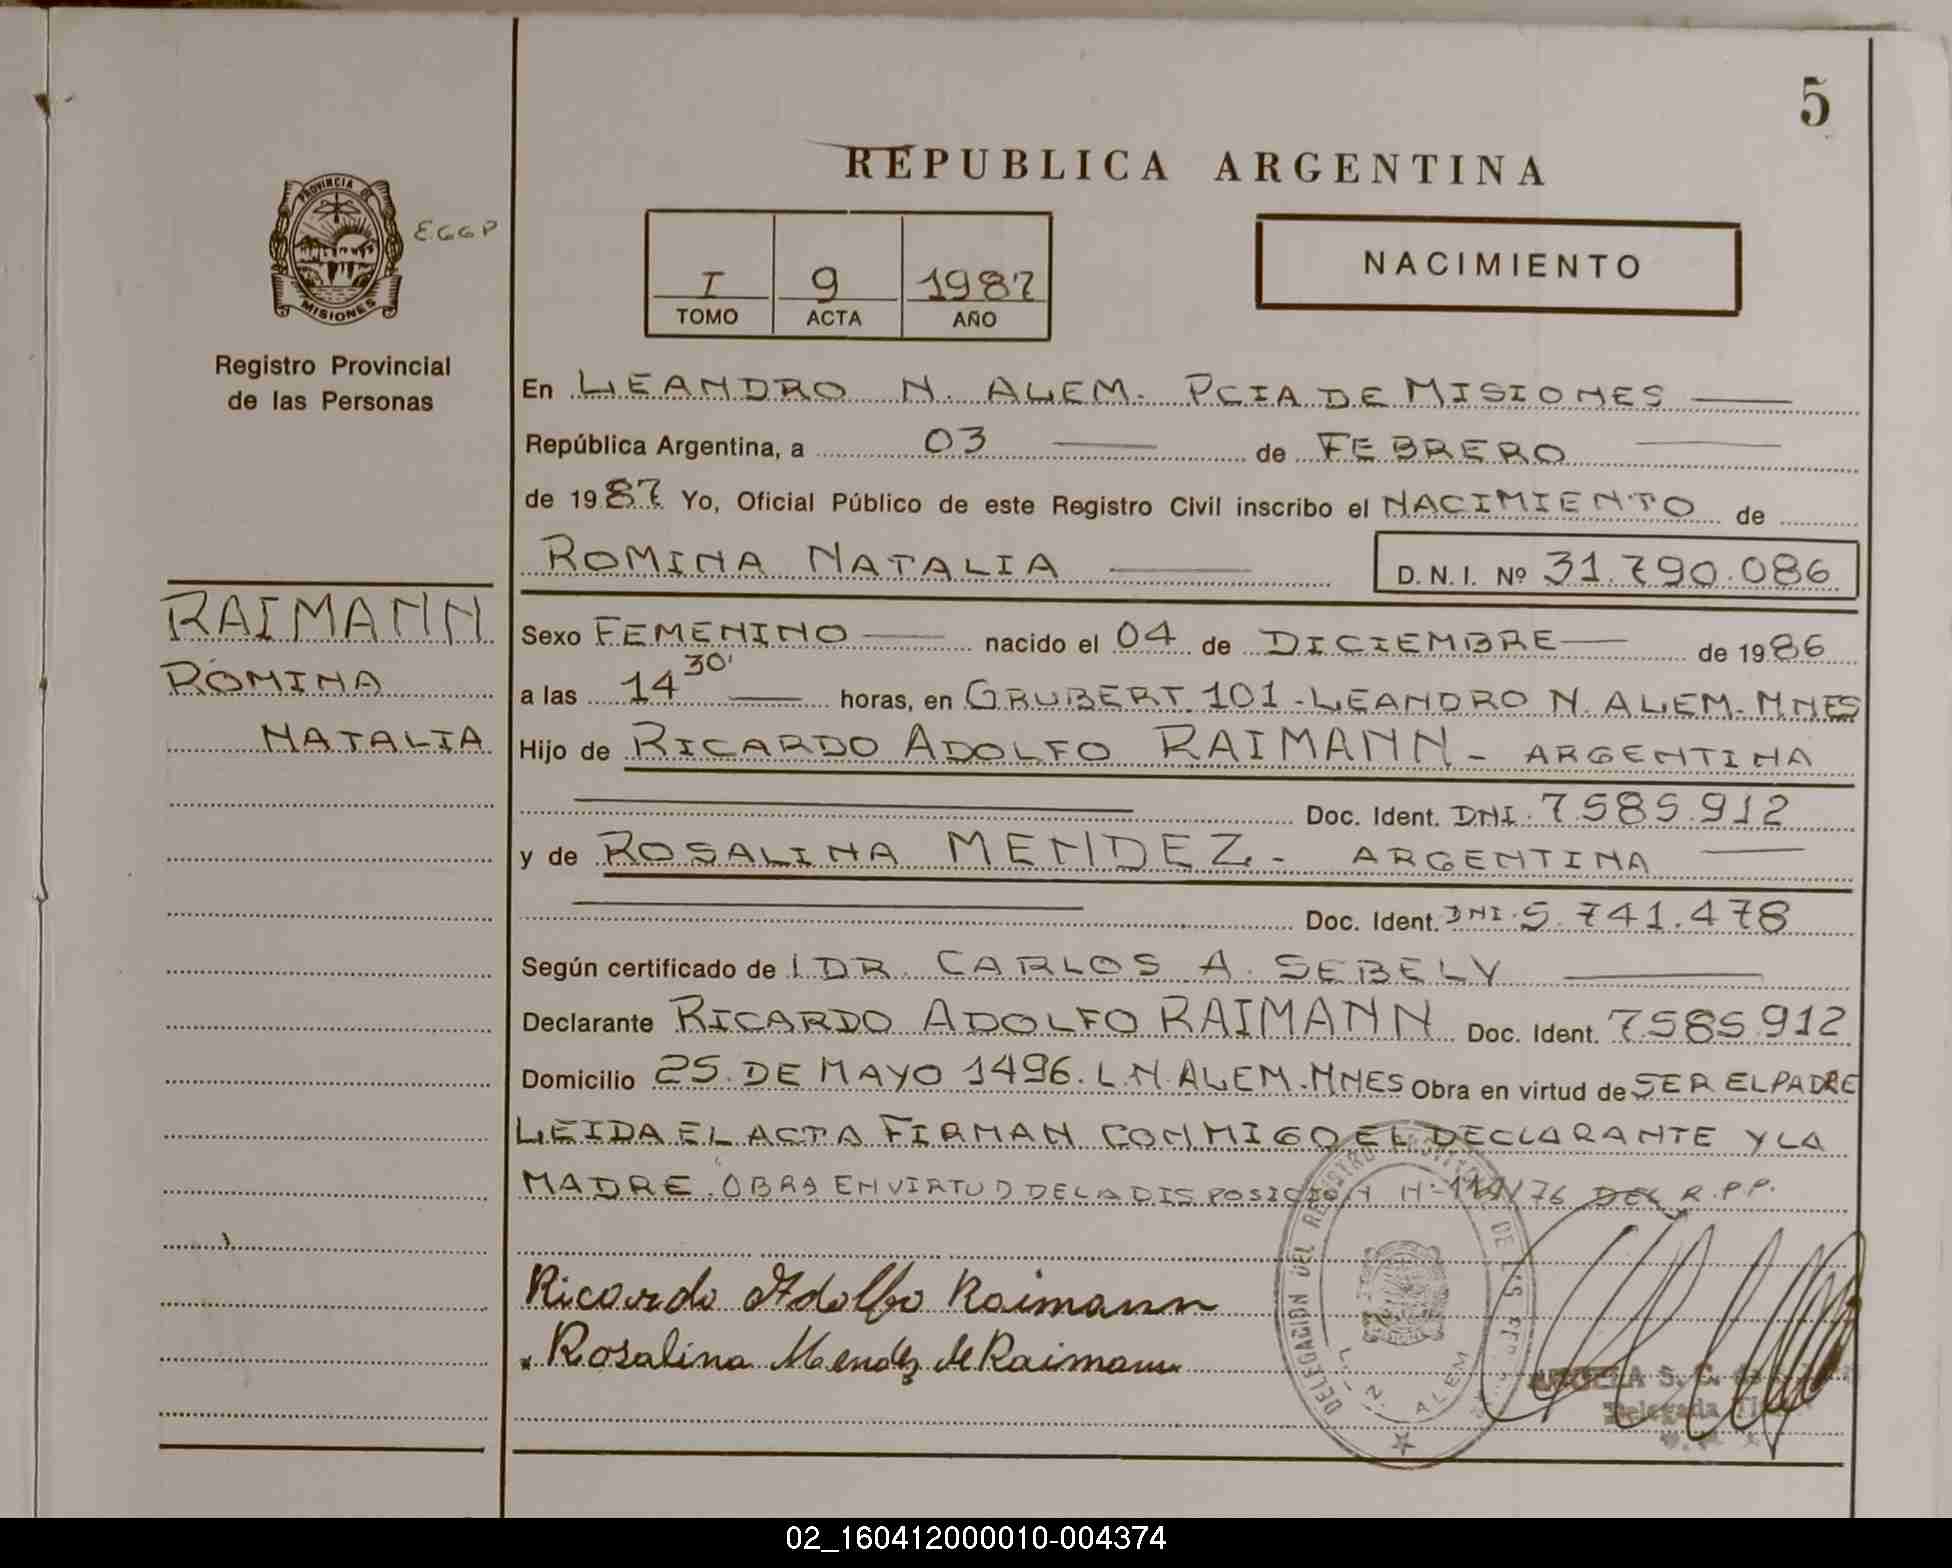 5
REPUBLICA ARGENTINA
PROVINCIA DE
MISIONES
EGGP
Registro Provincial
de las Personas
I 9 1987
TOMO ACTA AÑO
NACIMIENTO
En LEANDRO N. ALEM. PCIA DE MISIONES
República Argentina, a 03 de FEBRERO
de 1987 Yo, Oficial Público de este Registro Civil inscribo el NACIMIENTO de
ROMINA NATALIA D. N. I. Nº 31.790.086
RAIMANN
ROMINA
NATALIA
Sexo FEMENINO nacido el 04 de DICIEMBRE de 1986
a las 14 30' horas, en GRUBERT. 101 - LEANDRO N. ALEM. MNES
Hijo de RICARDO ADOLFO RAIMANN - ARGENTINA
Doc. Ident. DNI. 7.585.912
y de ROSALINA MENDEZ - ARGENTINA
Doc. Ident. DNI. 5.741.478
Según certificado de DR. CARLOS A. SEBELY
Declarante RICARDO ADOLFO RAIMANN Doc. Ident. 7.585.912
Domicilio 25 DE MAYO 1496. L.N. ALEM. MNES Obra en virtud de SER EL PADRE
LEIDA EL ACTA FIRMAN CONMIGO EL DECLARANTE Y LA
MADRE. OBRA EN VIRTUD DE LA DISPOSICION Nº /76 DEL R.P.P.
Ricardo Adolfo Raimann
Rosalina Mendez de Raimann
DELEGACION DEL REGISTRO DE
L. N. ALEM
S. C. de
Delegada
02_160412000010-004374